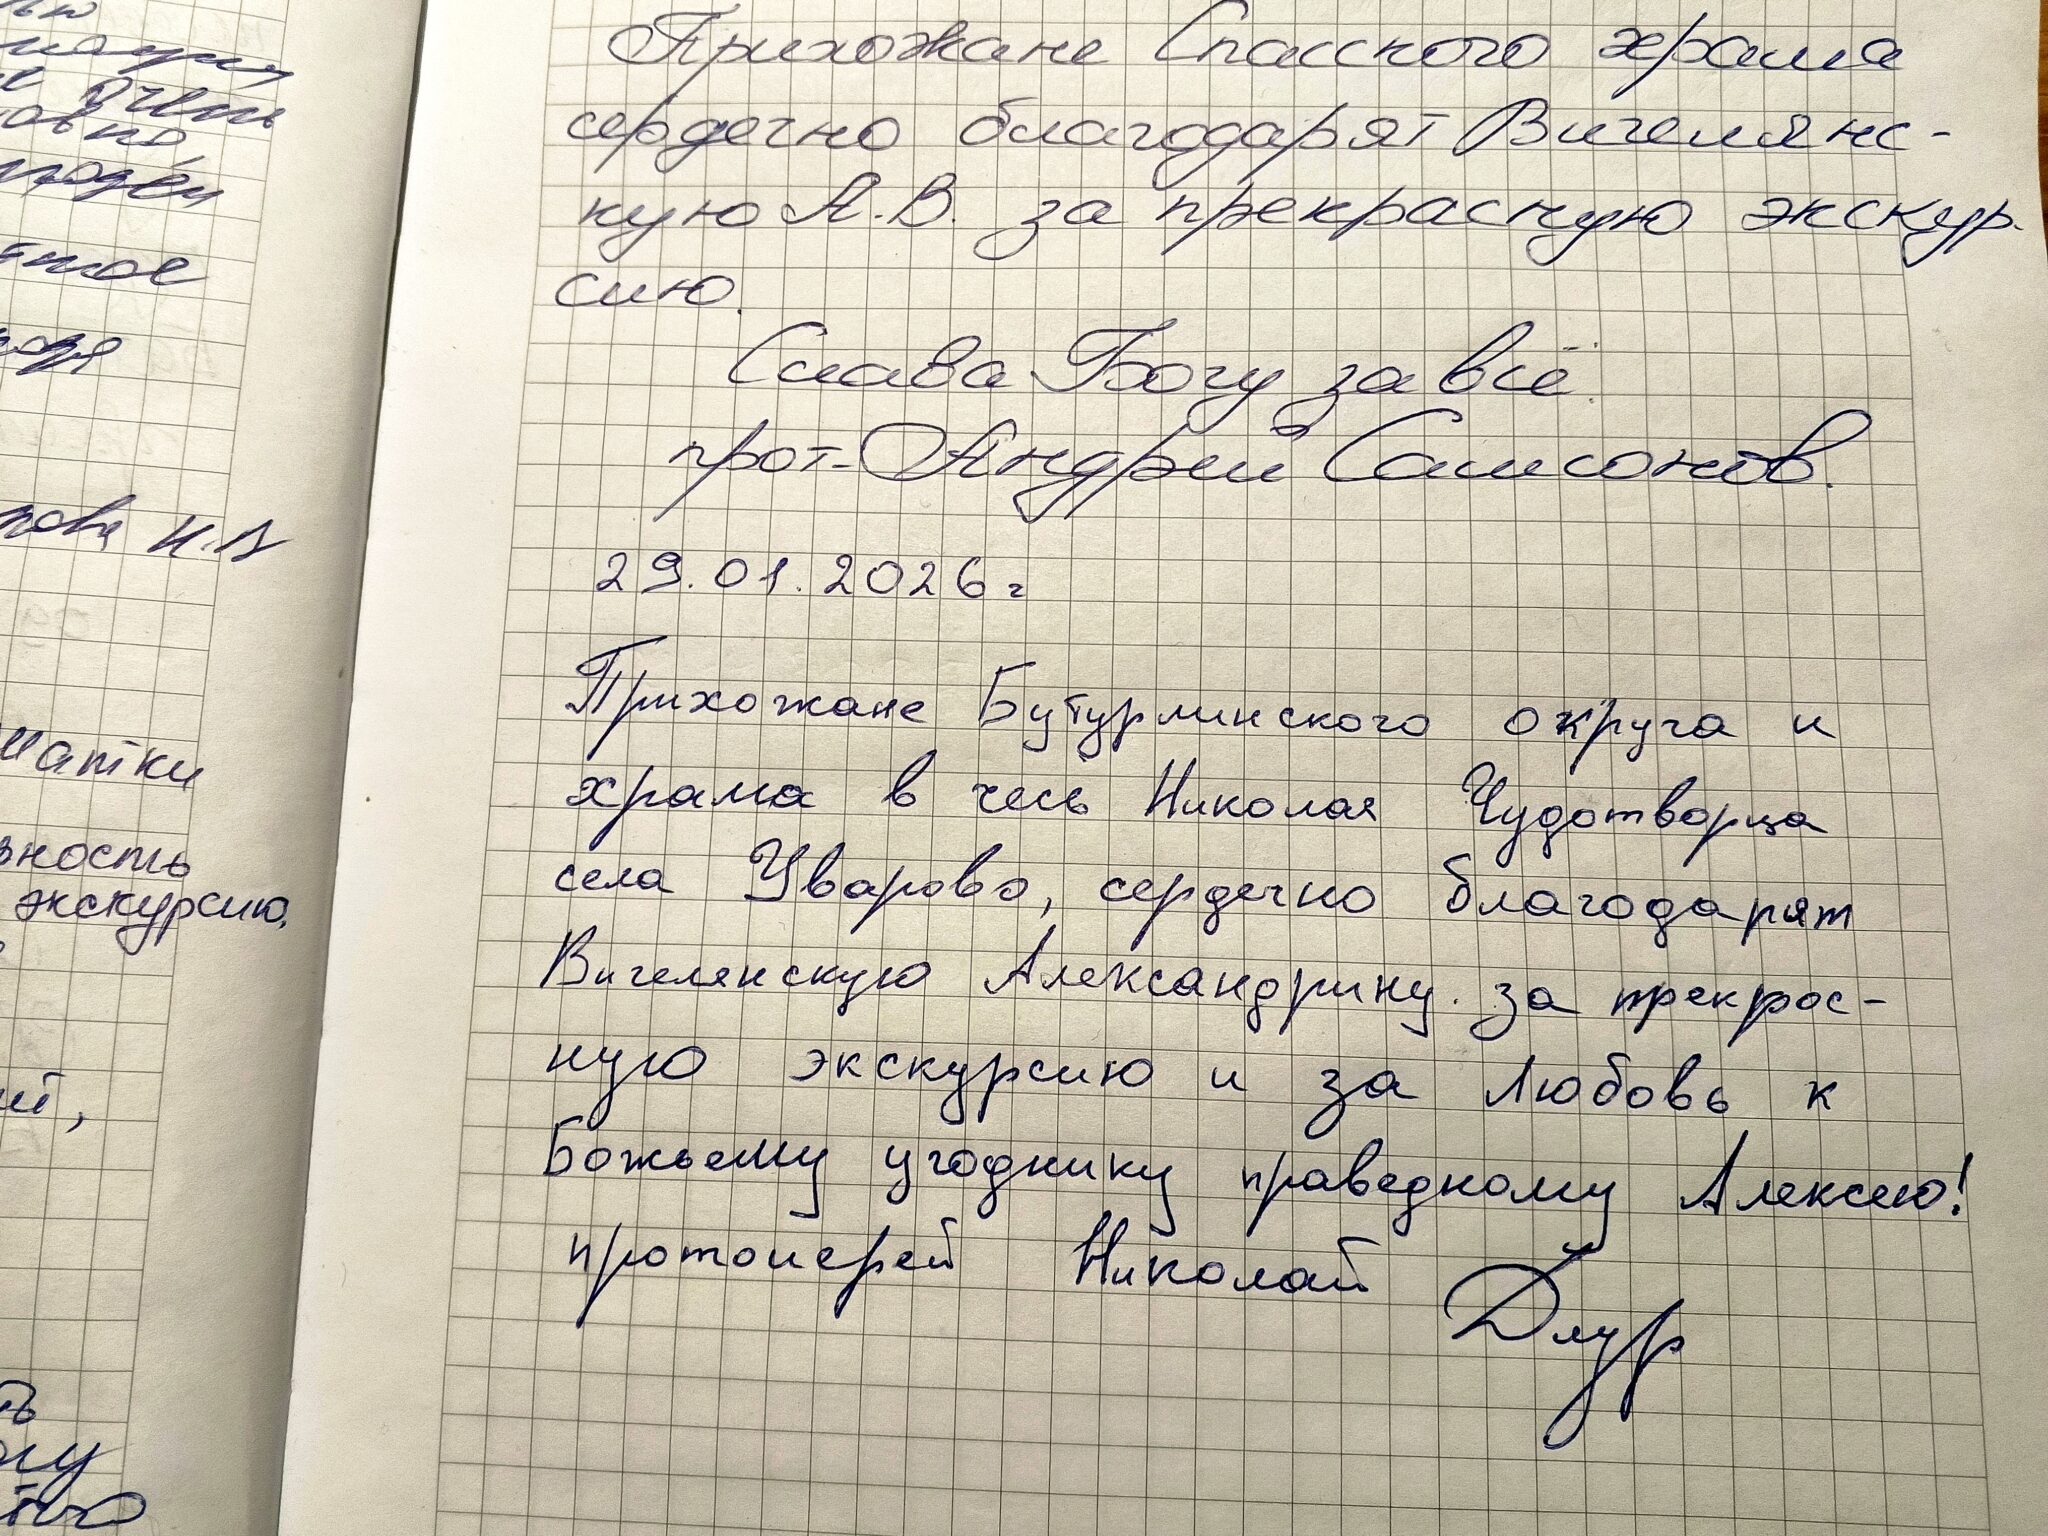 очень
экскурсию.
Прихожане Спасского храма
сердечно благодарят Вигелянс-
кую А.В. за прекрасную экскур-
сию.
Слава Богу за всё.
прот. Андрей Самсонов.
29.01.2026 г
Прихожане Бутурлинского округа и
храма в чесь Николая Чудотворца
села Уварово, сердечно благодарят
Вигелянскую Александрину за прекрос-
ную экскурсию и за любовь к
Божьему угоднику праведному Алексею!
протоиерей Николай